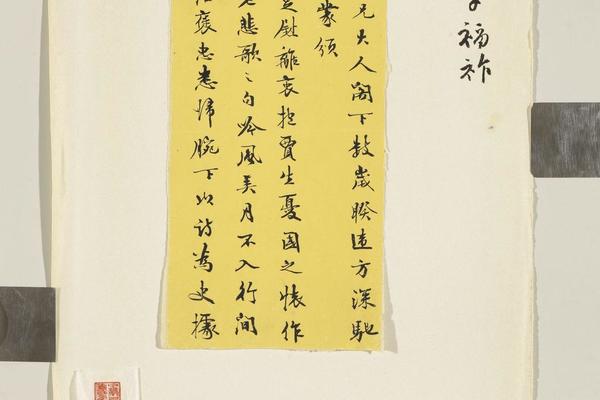 福祚
兄大人閣下数歲暌違方深馳
蒙頒
慰離衷抱賈生憂國之懷作
悲歌之句吟風弄月不入行間
褒忠悉歸腕下以詩為史據